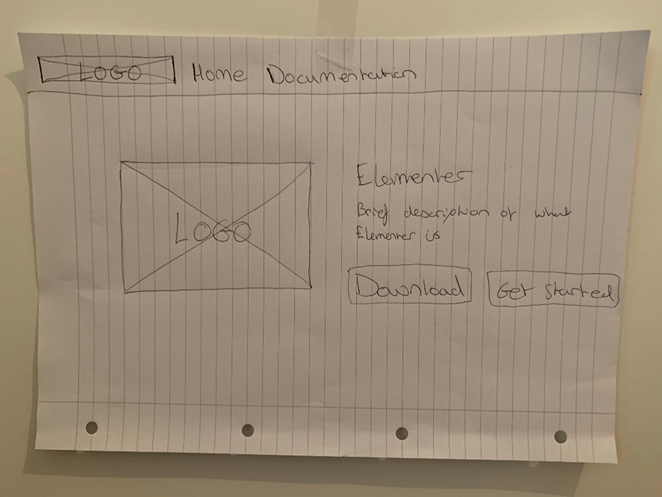 LOGO Home Documentation
LOGO
Elementes
Brief description of what
Elementes is
Download Get Started